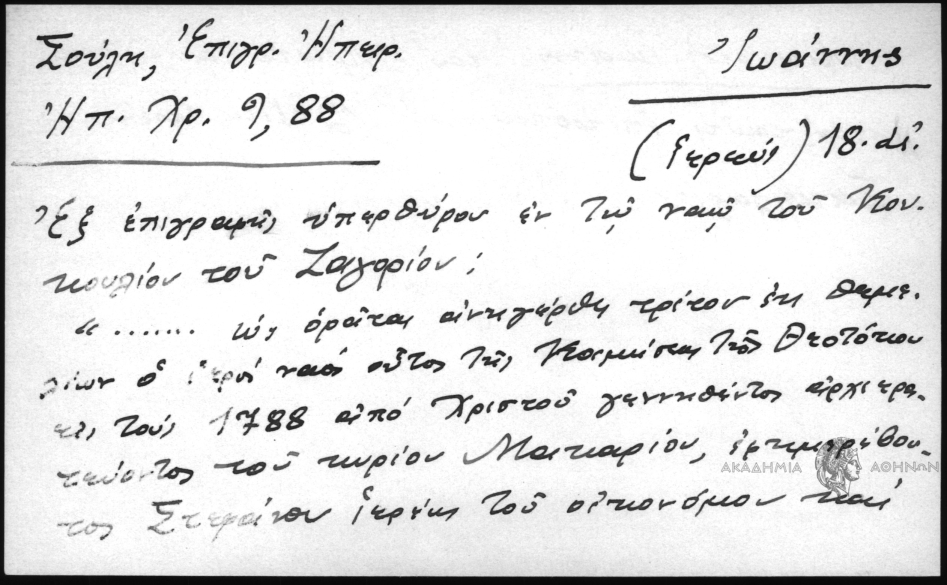 Σούλη, Ἐπιγρ. Ἠπειρ.
Ἰωάννης
Ἠπ. Χρ. 9, 88
(ἱερεύς) 18. αἰ.
Ἐξ ἐπιγραφῆς ὑπερθύρου ἐν τῷ ναῷ τοῦ Κου-
κουλίου τοῦ Ζαγορίου;
"....... ὡς ὁρᾶται ἀνηγέρθη τρίτον ἐκ θεμε-
λίων ὁ ἱερός ναός οὗτος τῆς Κοιμήσεως τῆς Θεοτόκου
τούς 1788 ἀπό Χριστοῦ γεννηθέντος ἀρχιερα-
τεύοντος τοῦ κυρίου Μακαρίου,
ΑΚΑΔΗΜΙΑ ΑΘΗΝΩΝ
τος Στεφάνου ἱερέως τοῦ οἰκονόμου καί